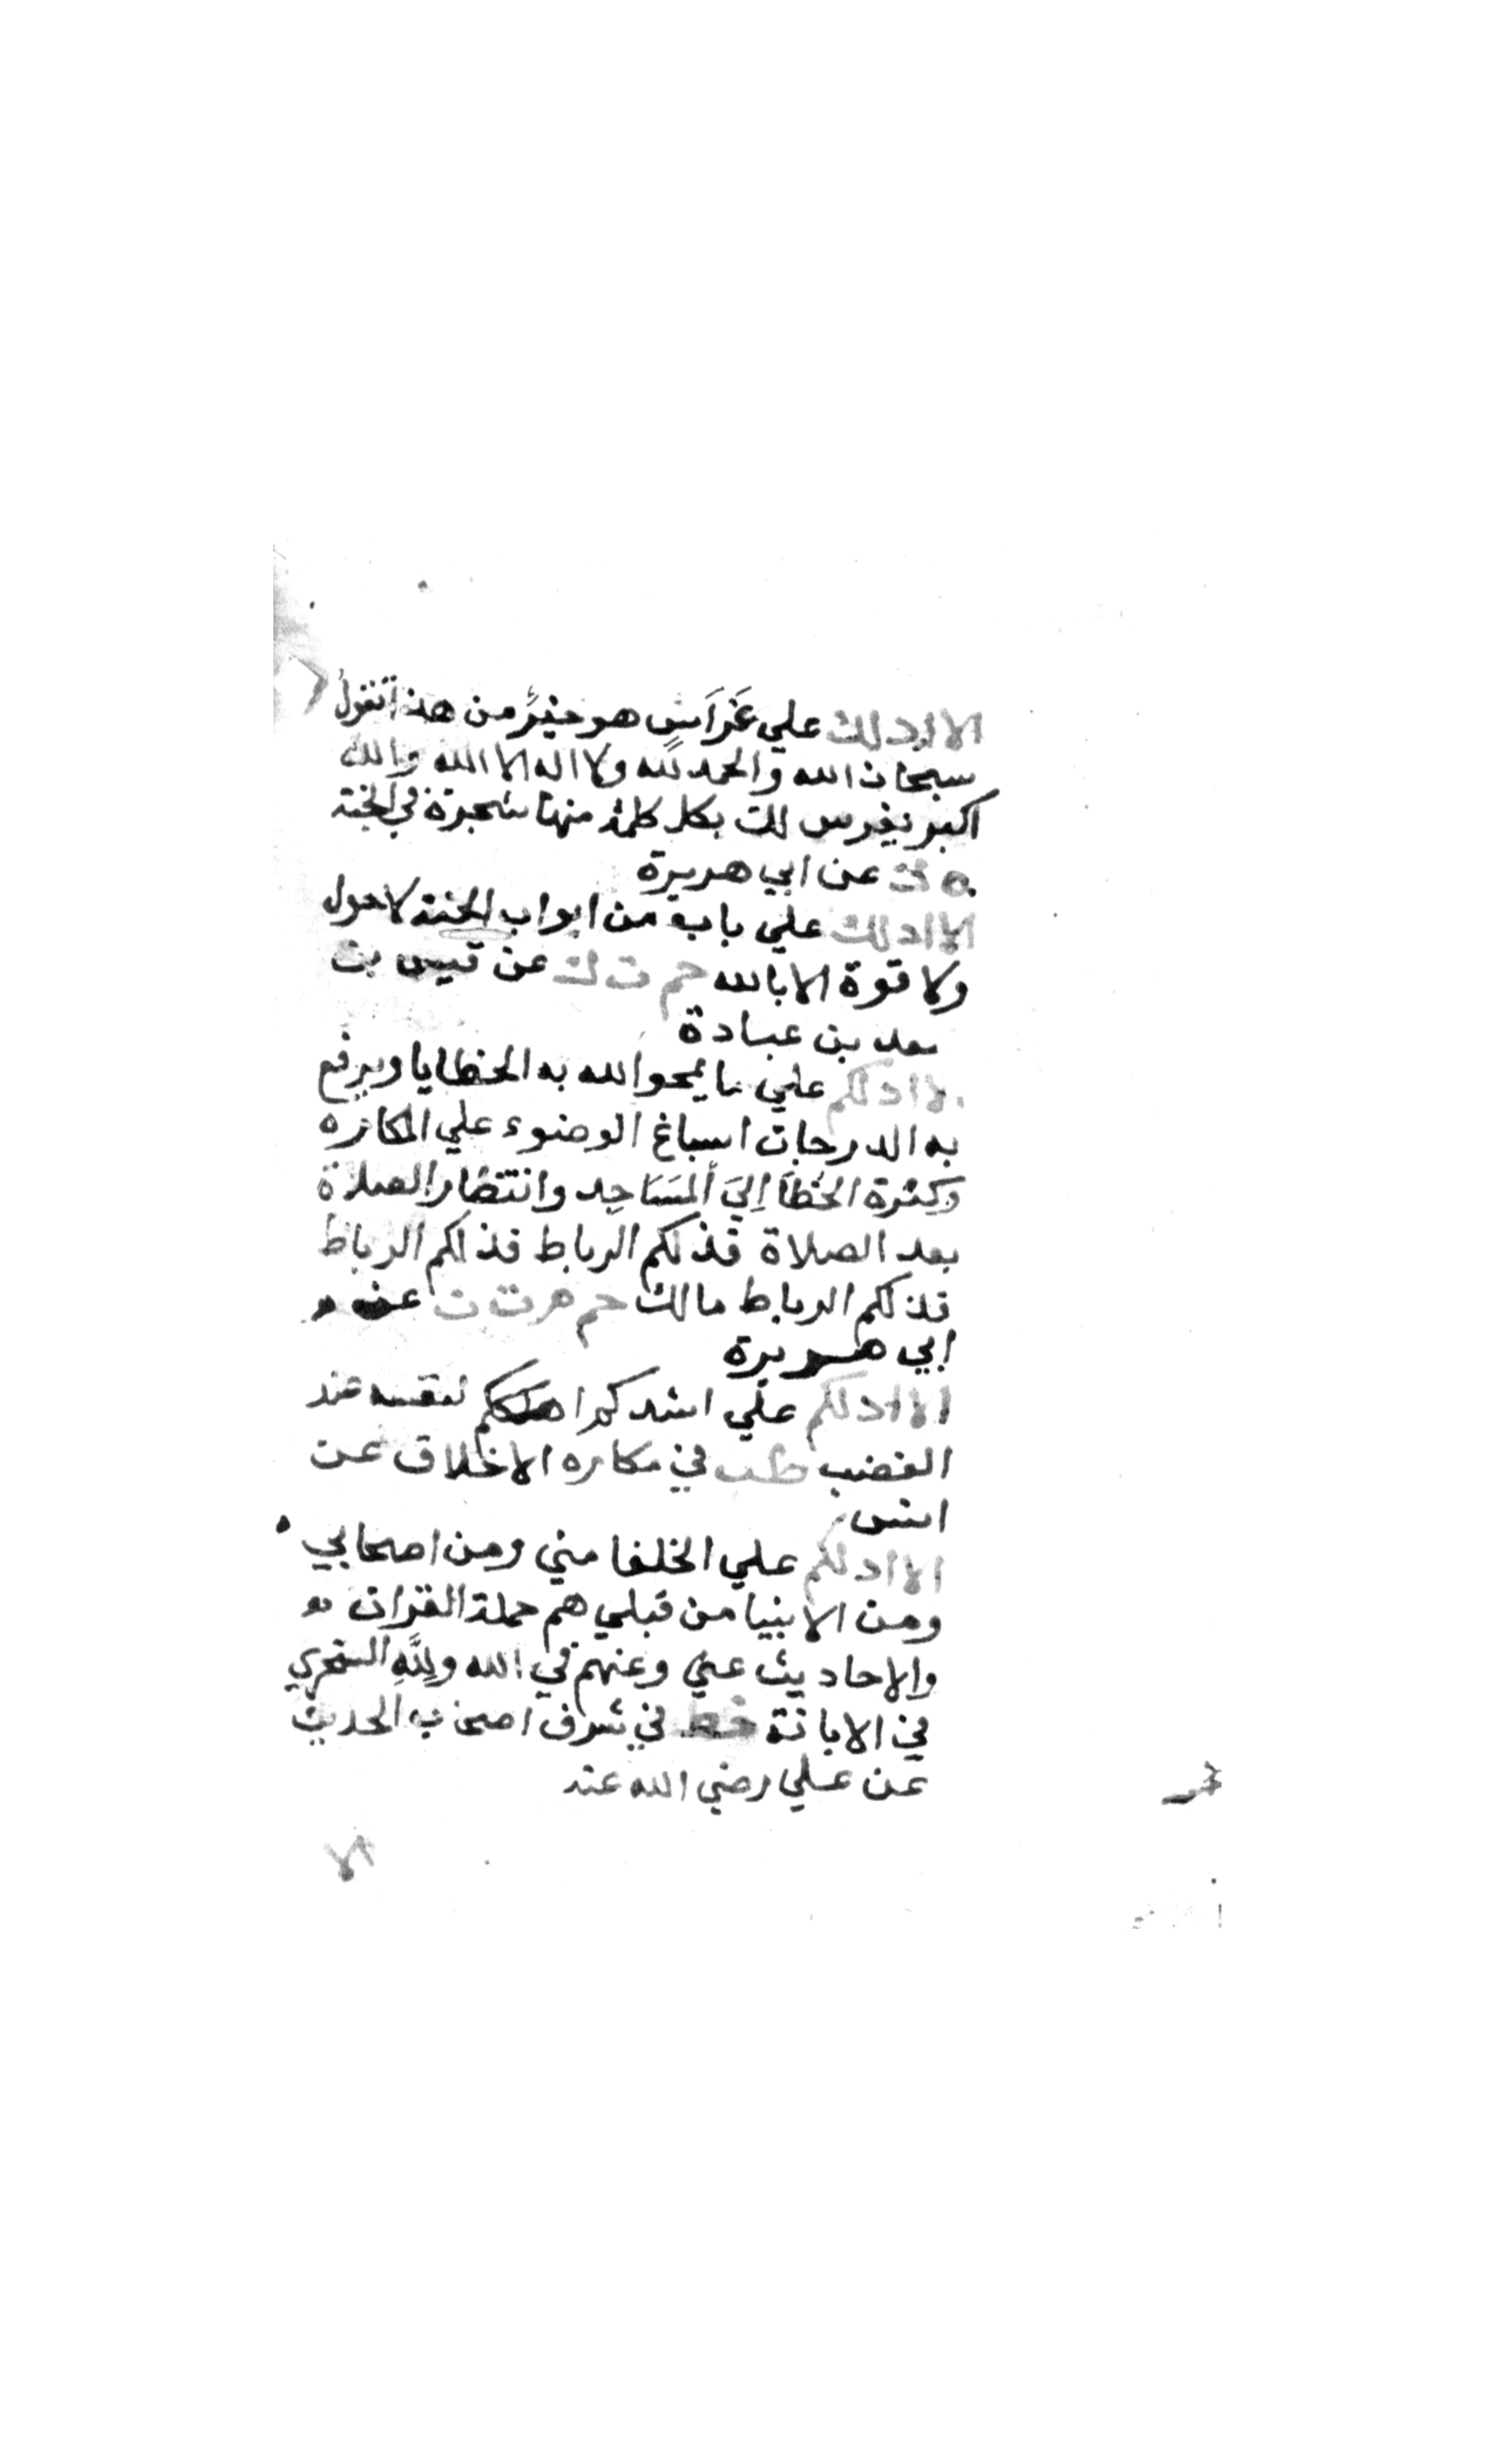 الا ادلك علي غَرَاسٍ هو خيرٌ من هذا تقول
سبحان الله والحمد لله ولا اله الا الله والله
اكبر يغرس لك بكل كلمة منها شجرة في الجنة
ه ك عن ابي هريرة
الا ادلك علي باب من ابواب الجنة لا حول
ولا قوة الا بالله حم ت ك عن قيس بن
سعد بن عبادة
الا ادلكم علي ما يمحو الله به الخطايا ويرفع
به الدرجات اسباغ الوضوء علي المكاره
وكثرة الخُطَا اِلَيَ الْمسَاجِد وانتظار الصلاة
بعد الصلاة فذلكم الرباط فذلكم الرباط
فذلكم الرباط مالك حم م ت ن عن
ابي هريرة
الا ادلكم علي اشدكم املككم لنفسه عند
الغضب طب في مكاره الاخلاق عن
انس
الا ادلكم علي الخلفا مني ومن اصحابي
ومن الانبيا من قبلي هم حملة القران
والاحاديث عني وعنهم في الله ولِلَّهِ السجزي
في الابانة خط في شرف اصحاب الحديث
عن علي رضي الله عنه
الا